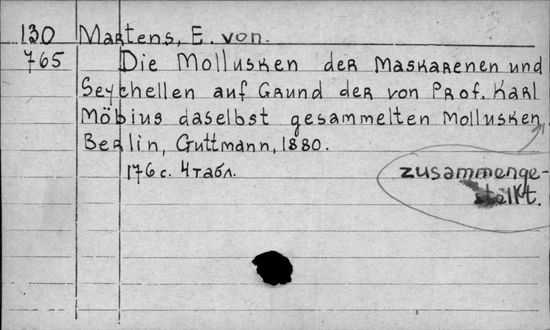 130 Martens, E. von.
765 Die Mollusken der Maskarenen und
Seychellen auf Grund der von Prof. Karl
Möbius daselbst gesammelten Mollusken
Berlin, Guttmann, 1880.
176 с. 4 табл.
zusammenge-
stellt.